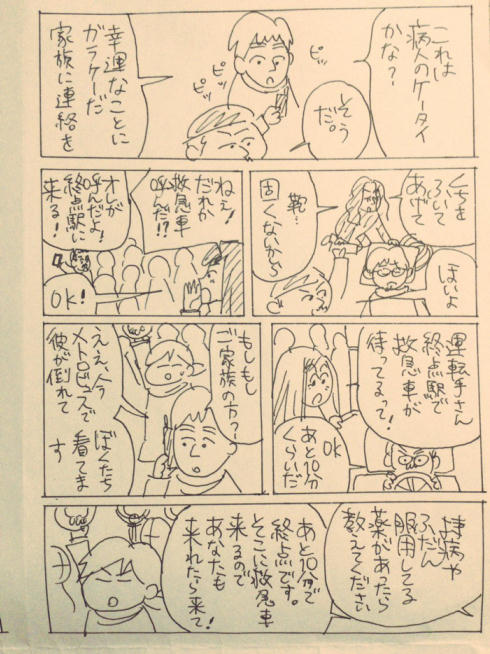 これは
病人のケータイ
かな?
そう
だ。
ピッ
ピッ
ピッ
幸運なことに
ガラケーだ
家族に連絡を
くちを
ふいて
あげて
ほいよ
靴…
固くないから
ねぇ!
だれか
救急車
呼んだ!?
オレが
呼んだよ!
終点駅に
来る!
OK!
運転手さん
終点駅で
救急車が
待ってるって!
OK
あと10分
くらいだ
もしもし
ご家族の方?
ええ、今
メトロビュスで
彼が倒れて
ぼくたち
看てます
持病や
ふだん
服用してる
薬があったら
教えてください
あと10分で
終点です。
そこに救急車
来るので
あなたも
来れたら来て!